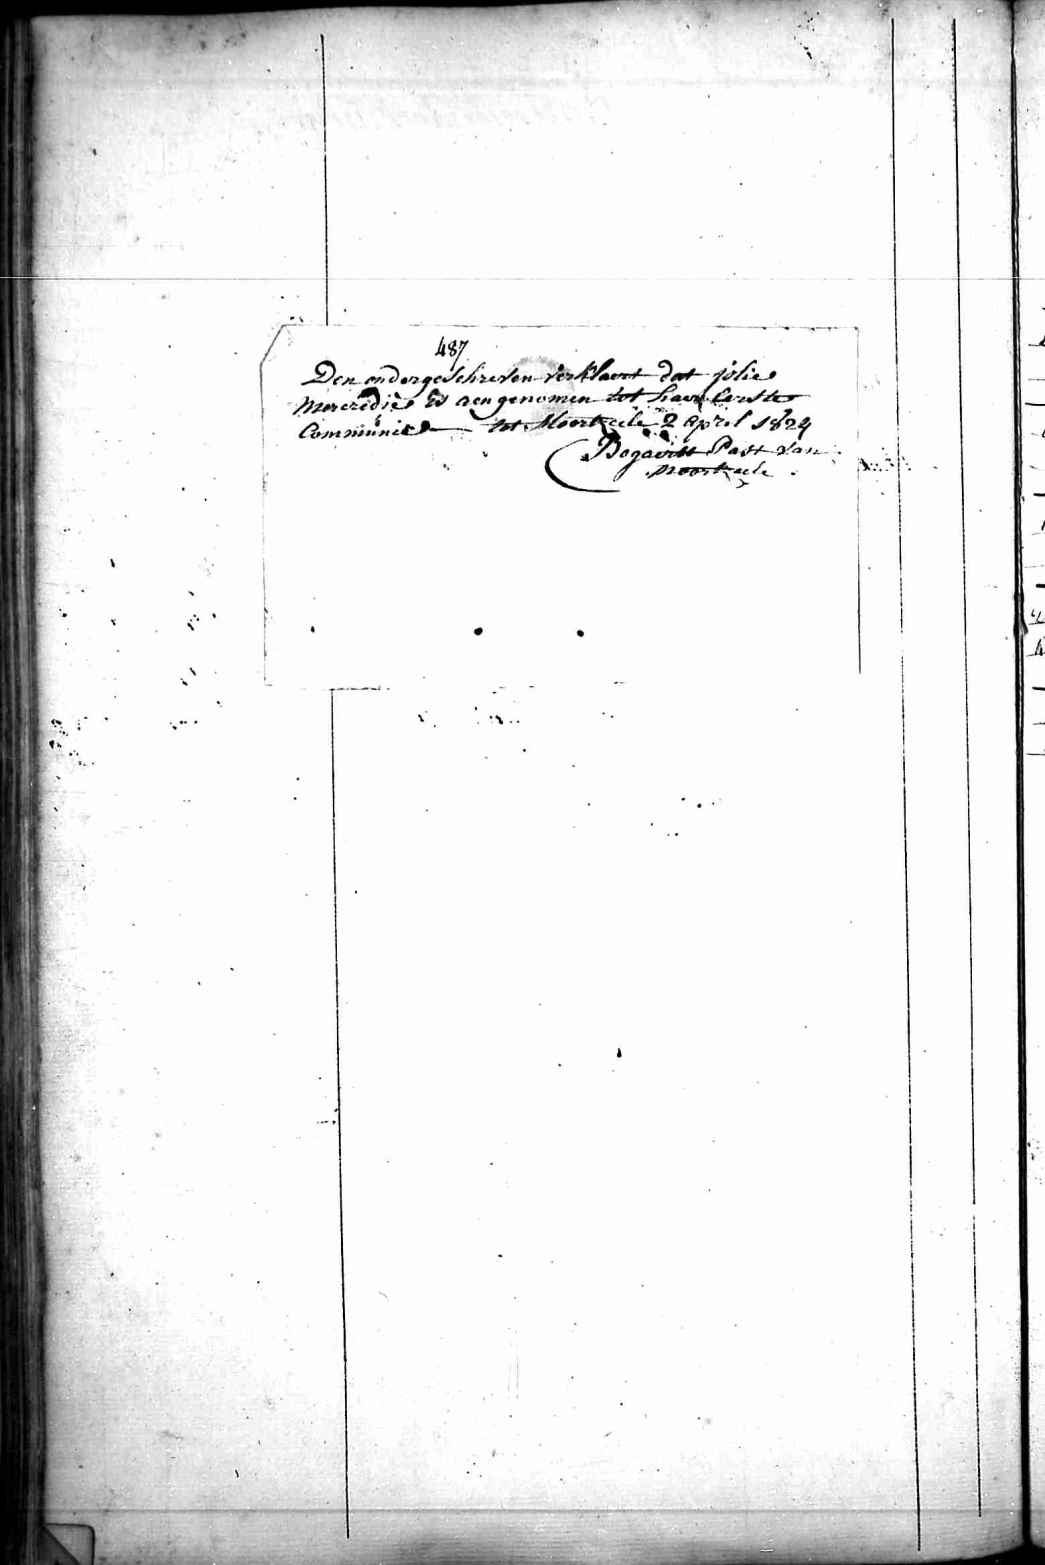 487
Den ondergeschreven verklaert dat jolie
Mercredie is aengenomen tot haer Eerste
Communie tot Moortzeele 2 april 1824
Bogaert Past van
Moortzeele